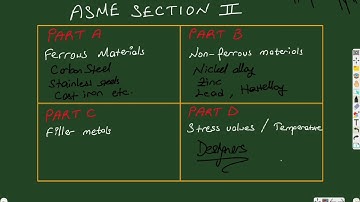 ASME SECTION II
PART A
Ferrous Materials
Carbon Steel
Stainless steels
Cast iron etc.
PART B
Non-ferrous materials
Nickel alloy
Zinc
Lead, Hastelloy
PART C
Filler metals
PART D
Stress values / Temperature
Designers